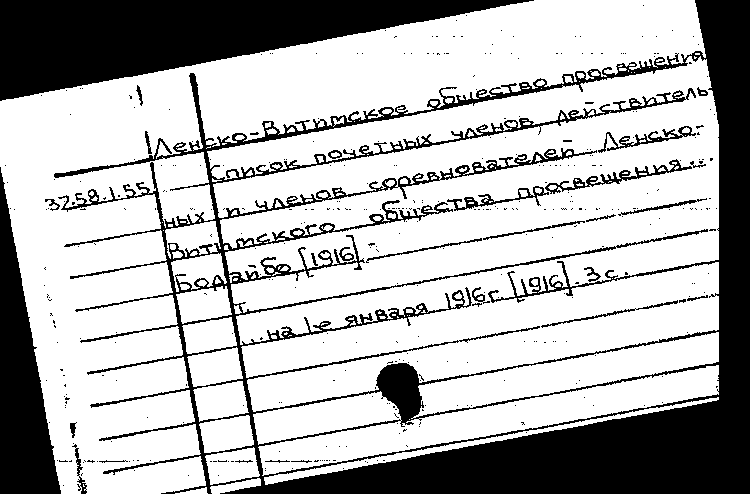 Ленско-Витимское общество просвещения
Список почетных членов, действитель-
37.58.1.55.
ных и членов соревнователей Ленско-
Витимского общества просвещения...
Бодайбо, [1916].-
т.
...на 1-е января 1916г. [1916]. 3 с.